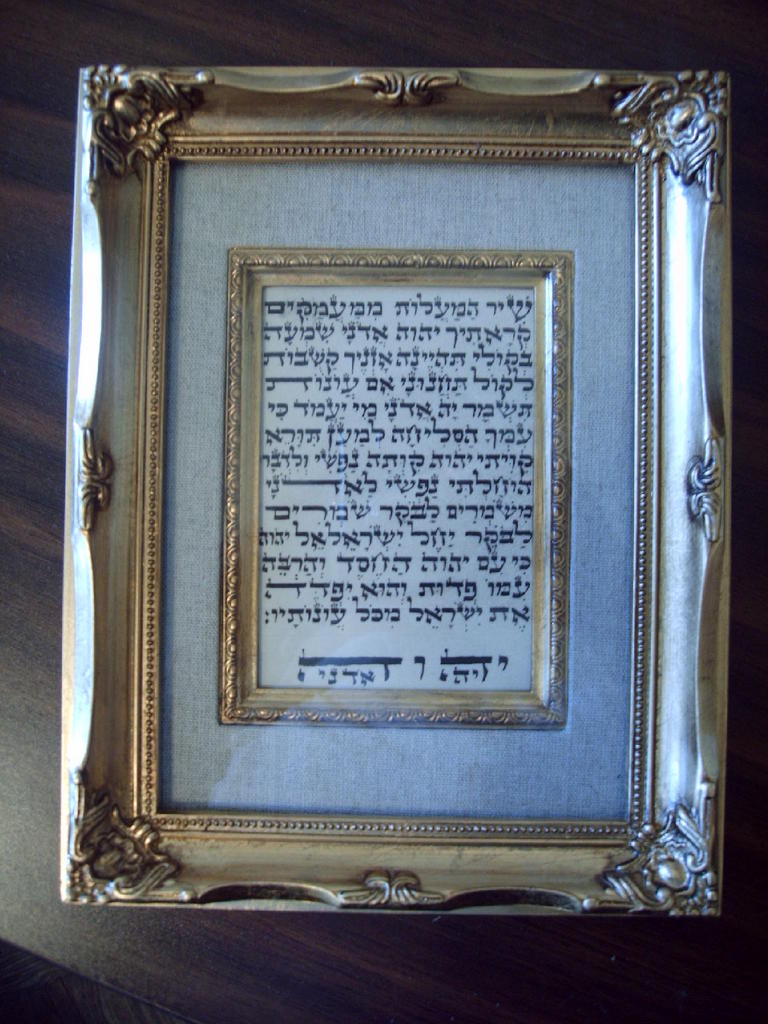 שִׁיר הַמַּעֲלוֹת מִמַּעֲמַקִּים
קְרָאתִיךָ יהוה אֲדֹנָי שִׁמְעָה
בְקוֹלִי תִּהְיֶינָה אָזְנֶיךָ קַשֻּׁבוֹת
לְקוֹל תַּחֲנוּנָי אִם עֲוֹנוֹת
תִּשְׁמָר יָהּ אֲדֹנָי מִי יַעֲמֹד כִּי
עִמְּךָ הַסְּלִיחָה לְמַעַן תִּוָּרֵא
קִוִּיתִי יהוה קִוְּתָה נַפְשִׁי וְלִדְבָרוֹ
הוֹחָלְתִּי נַפְשִׁי לַאדֹנָי
מִשֹּׁמְרִים לַבֹּקֶר שֹׁמְרִים
לַבֹּקֶר יַחֵל יִשְׂרָאֵל אֶל יהוה
כִּי עִם יהוה הַחֶסֶד וְהַרְבֵּה
עִמּוֹ פְדוּת וְהוּא יִפְדֶּה
אֶת יִשְׂרָאֵל מִכֹּל עֲוֹנוֹתָיו: